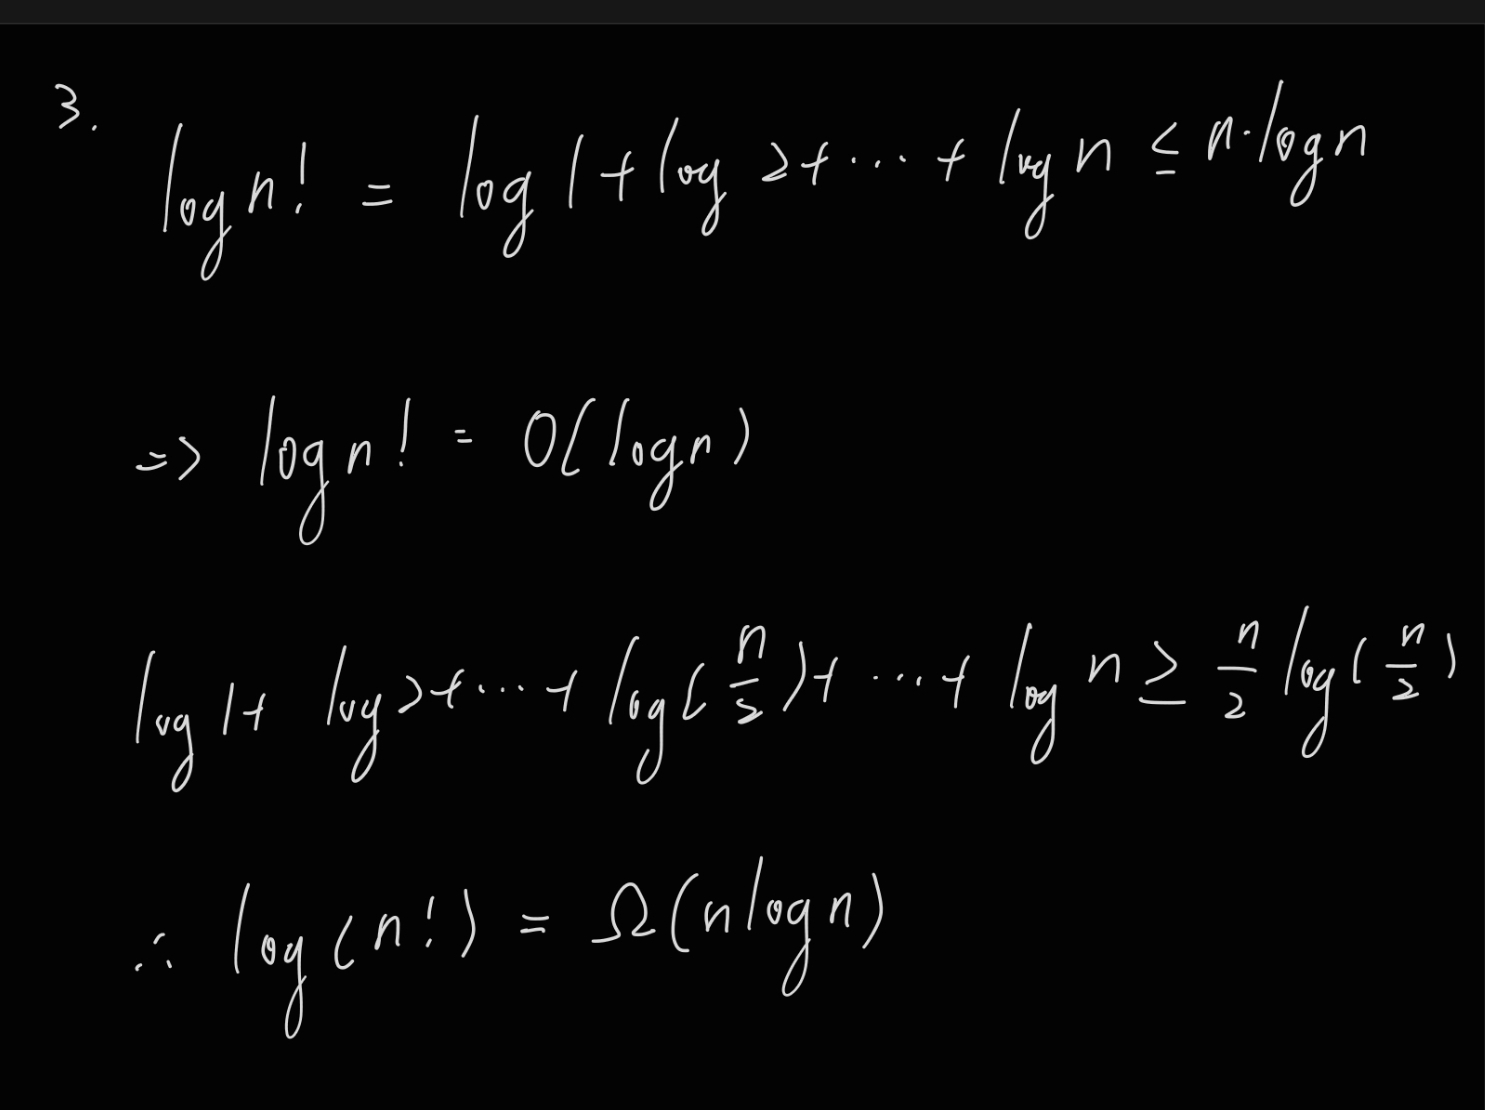 3. log n! = log 1 + log 2 + ... + log n ≤ n · log n
=> log n! = O(log n)
log 1 + log 2 + ... + log(n/2) + ... + log n ≥ n/2 log(n/2)
∴ log(n!) = Ω(n log n)